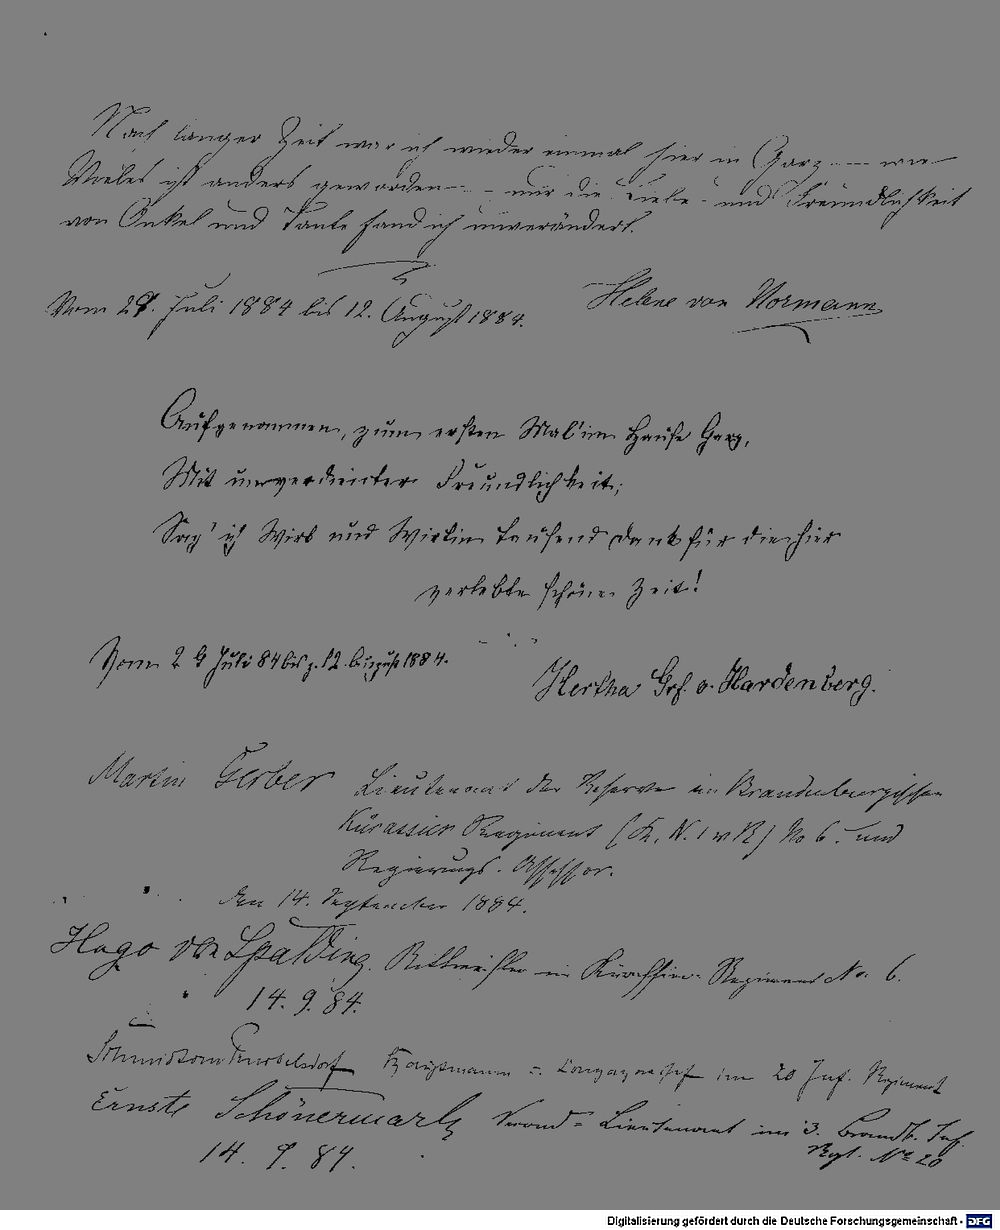 Nach langer Zeit war ich wieder einmal hier in Garz --- wie
Vieles ist anders geworden --- nur die Liebe und Freundlichkeit
von Onkel und Tante fand ich unverändert.
Vom 29. Juli 1884 bis 12. August 1884.
Helene von Normann
Aufgenommen, zum ersten Mal im Hause Garz,
Mit unverdienter Freundlichkeit,
Sag' ich Wirt und Wirtin tausend Dank für die hier
verlebte schöne Zeit!
Vom 29 Juli 84 bis z. 12 August 1884.
Hertha Grf. v. Hardenberg.
Martin Gerber Lieutenant der Reserve im Brandenburgischen
Kürassier Regiment (K. N. I v R) No 6. und
Regierungs-Assessor.
den 14. September 1884.
Hugo von Spalding. Rittmeister im Kürassier-Regiment No. 6.
14. 9. 84.
Hauptmann = Compagniechef im 20 Inf. Regiment
Ernst Schönermark Second-Lieutenant im 3. Brandb. Inf.
Regt. No 20
14. 9. 84.
Digitalisierung gefördert durch die Deutsche Forschungsgemeinschaft - DFG